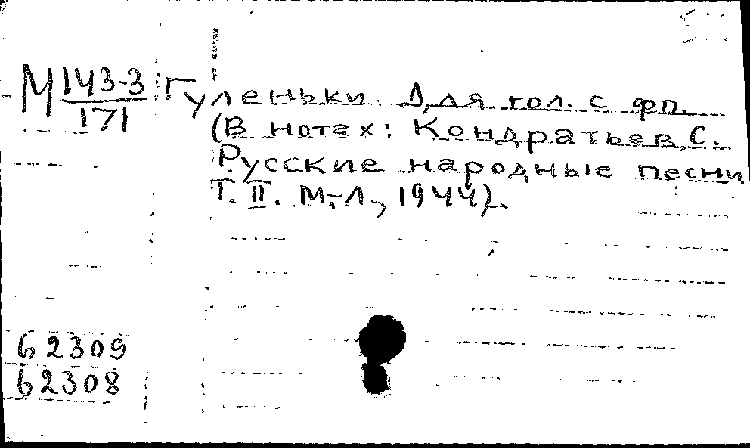 М 143-3 Гуленьки. Для гол. с фп.
171 (В нотах: Кондратьев, С.
Русские народные песни
Т. II. М.-Л., 1944).
62309
62308